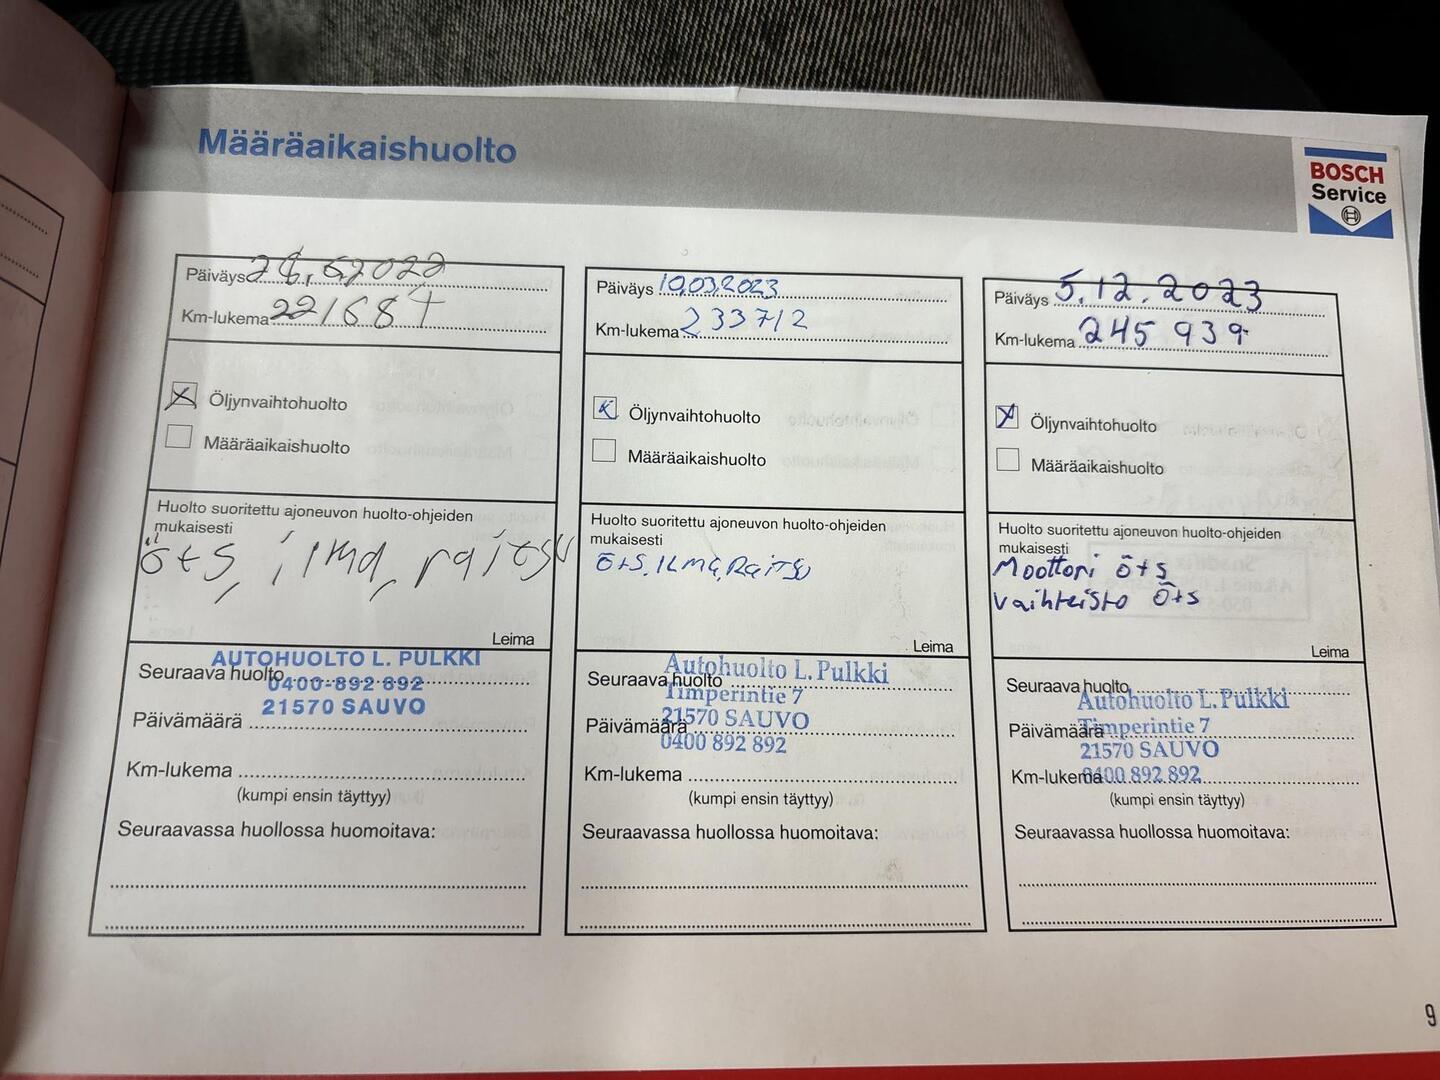 Määräaikaishuolto
BOSCH
Service
Päiväys 28.6.2022
Km-lukema 221684
Öljynvaihtohuolto
Määräaikaishuolto
Huolto suoritettu ajoneuvon huolto-ohjeiden
mukaisesti
öts, ilma, raitisu
Leima
AUTOHUOLTO L. PULKKI
Seuraava huolto
0400-892 892
21570 SAUVO
Päivämäärä
Km-lukema
(kumpi ensin täyttyy)
Seuraavassa huollossa huomoitava:
Päiväys 10.03.2023
Km-lukema 233712
Öljynvaihtohuolto
Määräaikaishuolto
Huolto suoritettu ajoneuvon huolto-ohjeiden
mukaisesti
öts, ILMA, Raitsu
Leima
Autohuolto L. Pulkki
Seuraava huolto
Timperintie 7
21570 SAUVO
Päivämäärä
0400 892 892
Km-lukema
(kumpi ensin täyttyy)
Seuraavassa huollossa huomoitava:
Päiväys 5.12.2023
Km-lukema 245 939
Öljynvaihtohuolto
Määräaikaishuolto
Huolto suoritettu ajoneuvon huolto-ohjeiden
mukaisesti
Moottori öts
vaihteisto öts
Leima
Seuraava huolto
Autohuolto L. Pulkki
Päivämäärä
Timperintie 7
21570 SAUVO
Km-lukema
0400 892 892
(kumpi ensin täyttyy)
Seuraavassa huollossa huomoitava:
9